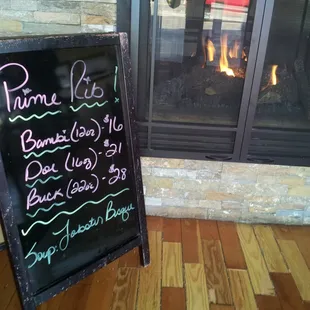 Prime Rib!
Bambi (12oz) - $16
Doe (16oz) - $21
Buck (22oz) - $28
Soup: Lobster Bisque